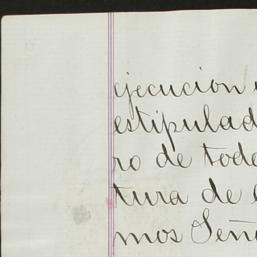 ejecucion
estipulad
ro de tode
tura de
mos Seño